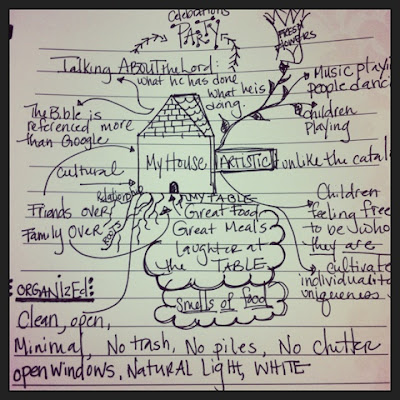 Celebrations
PARTY
FRESH
FLOWERS
Talking ABOUT the Lord:
what he has done
what he is
doing.
Music playin
people danci
children
playing
The Bible is
referenced more
than Google
My House
ARTISTIC
unlike the catal
cultural
Relationship
Friends over
Family over
ROOTS
MY TABLE
Great food
Great Meals
laughter at
the TABLE
Smells of food
Children
feeling free
to be who
they are
cultivate
individualit
uniqueness
ORGANIZEd:
Clean, open,
Minimal, No trash, No piles, No clutter
open windows, NATURAL light, WHITE